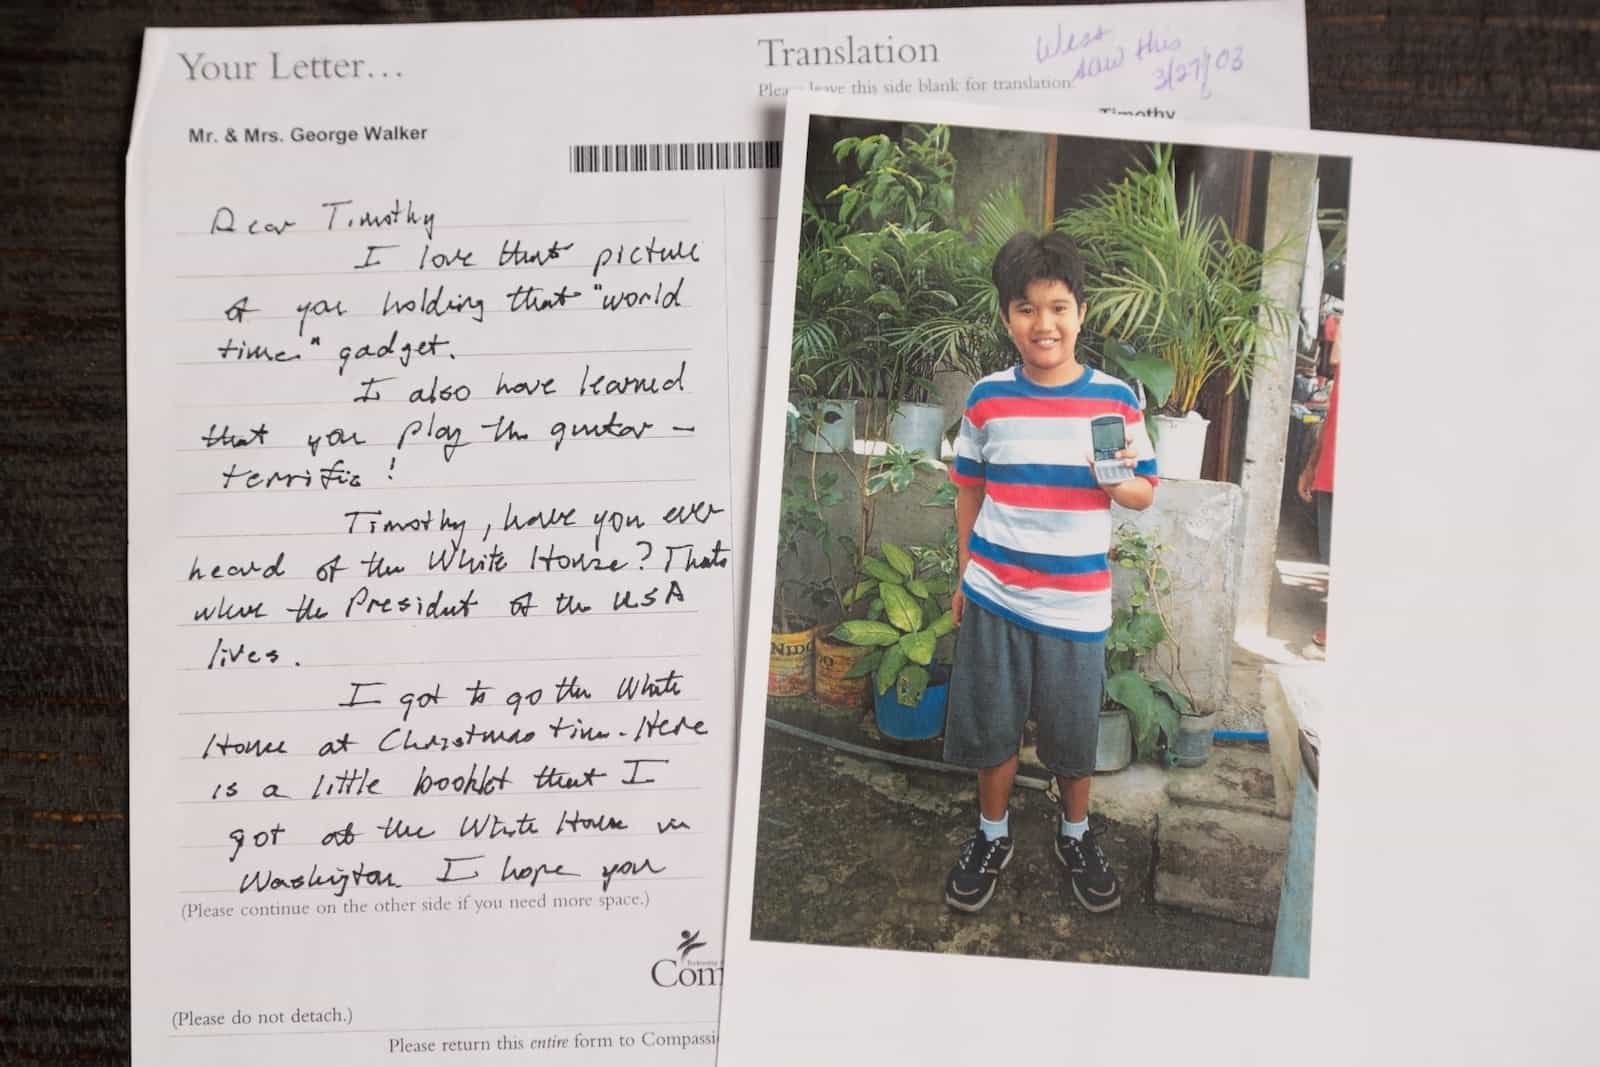 Your Letter...
Mr. & Mrs. George Walker
Dear Timothy
I love that picture
of you holding that "world
time" gadget.
I also have learned
that you play the guitar –
terrific!
Timothy, have you ever
heard of the White House? Thats
where the President of the USA
lives.
I got to go the White
House at Christmas time. Here
is a little booklet that I
got at the White House in
Washington. I hope you
(Please continue on the other side if you need more space.)
Com
(Please do not detach.)
Please return this entire form to Compassi
Translation
Wess
saw this
3/27/03
Please leave this side blank for translation.
Timothy
NIDO
DO